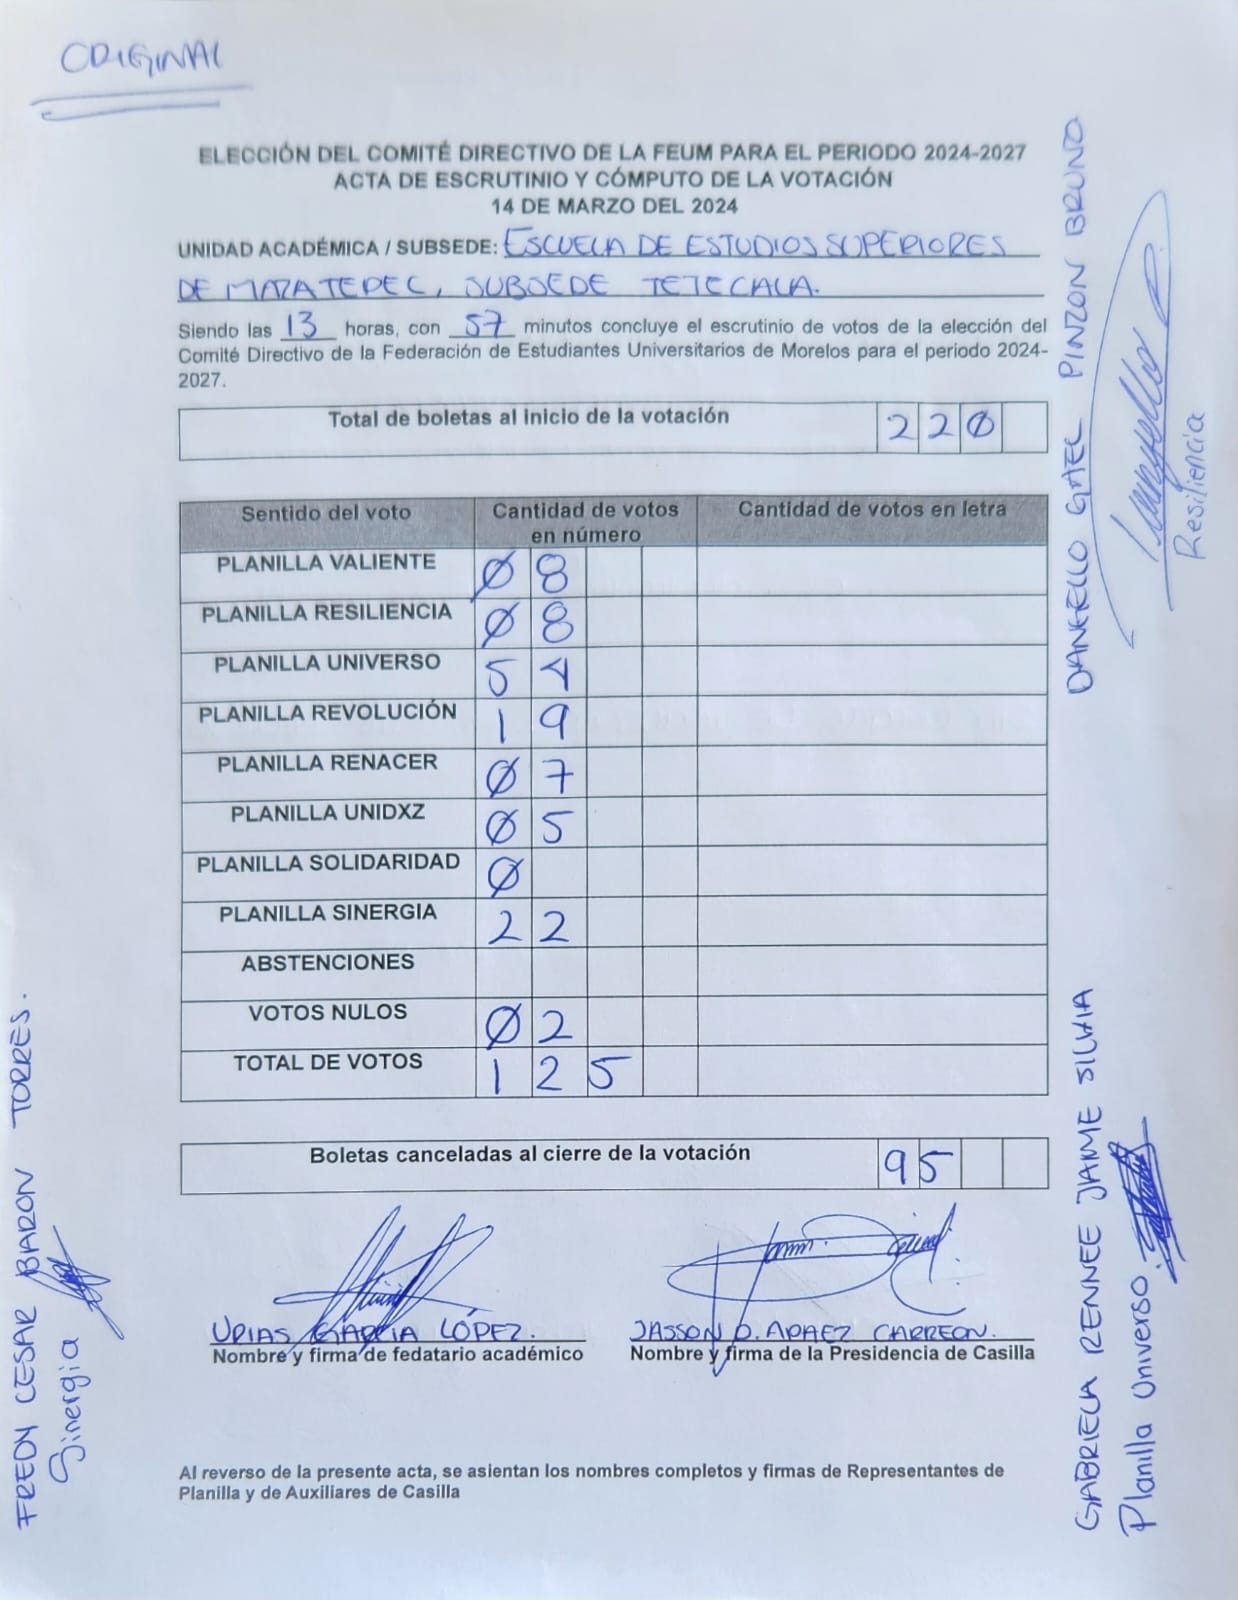 ORIGINAL
ELECCIÓN DEL COMITÉ DIRECTIVO DE LA FEUM PARA EL PERIODO 2024-2027
ACTA DE ESCRUTINIO Y CÓMPUTO DE LA VOTACIÓN
14 DE MARZO DEL 2024
UNIDAD ACADÉMICA / SUBSEDE: ESCUELA DE ESTUDIOS SUPERIORES
DE MAZATEPEC, SUBSEDE TETECALA.
Siendo las 13 horas, con 57 minutos concluye el escrutinio de votos de la elección del
Comité Directivo de la Federación de Estudiantes Universitarios de Morelos para el periodo 2024-
2027.
Total de boletas al inicio de la votación 220
Sentido del voto Cantidad de votos en número Cantidad de votos en letra
PLANILLA VALIENTE 08
PLANILLA RESILIENCIA 08
PLANILLA UNIVERSO 54
PLANILLA REVOLUCIÓN 19
PLANILLA RENACER 07
PLANILLA UNIDXZ 05
PLANILLA SOLIDARIDAD 0
PLANILLA SINERGIA 22
ABSTENCIONES
VOTOS NULOS 02
TOTAL DE VOTOS 125
Boletas canceladas al cierre de la votación 95
URIAS GARCIA LÓPEZ. JASSON D. ARAEZ CARREON.
Nombre y firma de fedatario académico Nombre y firma de la Presidencia de Casilla
Al reverso de la presente acta, se asientan los nombres completos y firmas de Representantes de
Planilla y de Auxiliares de Casilla
FREDY CESAR BARON TORRES.
Sinergia
GAEL PINZON BRUNO
Resiliencia
GABRIELA RENNEE JAIME SILVIA
Planilla Universo